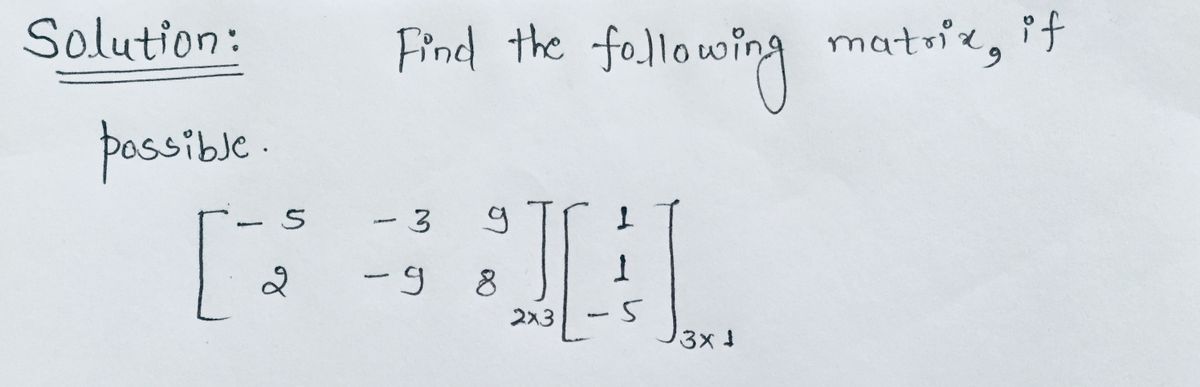 Solution: Find the following matrix, if
possible.
[ -5 -3 9 ] [ 1 ]
[ 2 -9 8 ]2x3 [ 1 ]
[ -5 ]3x1